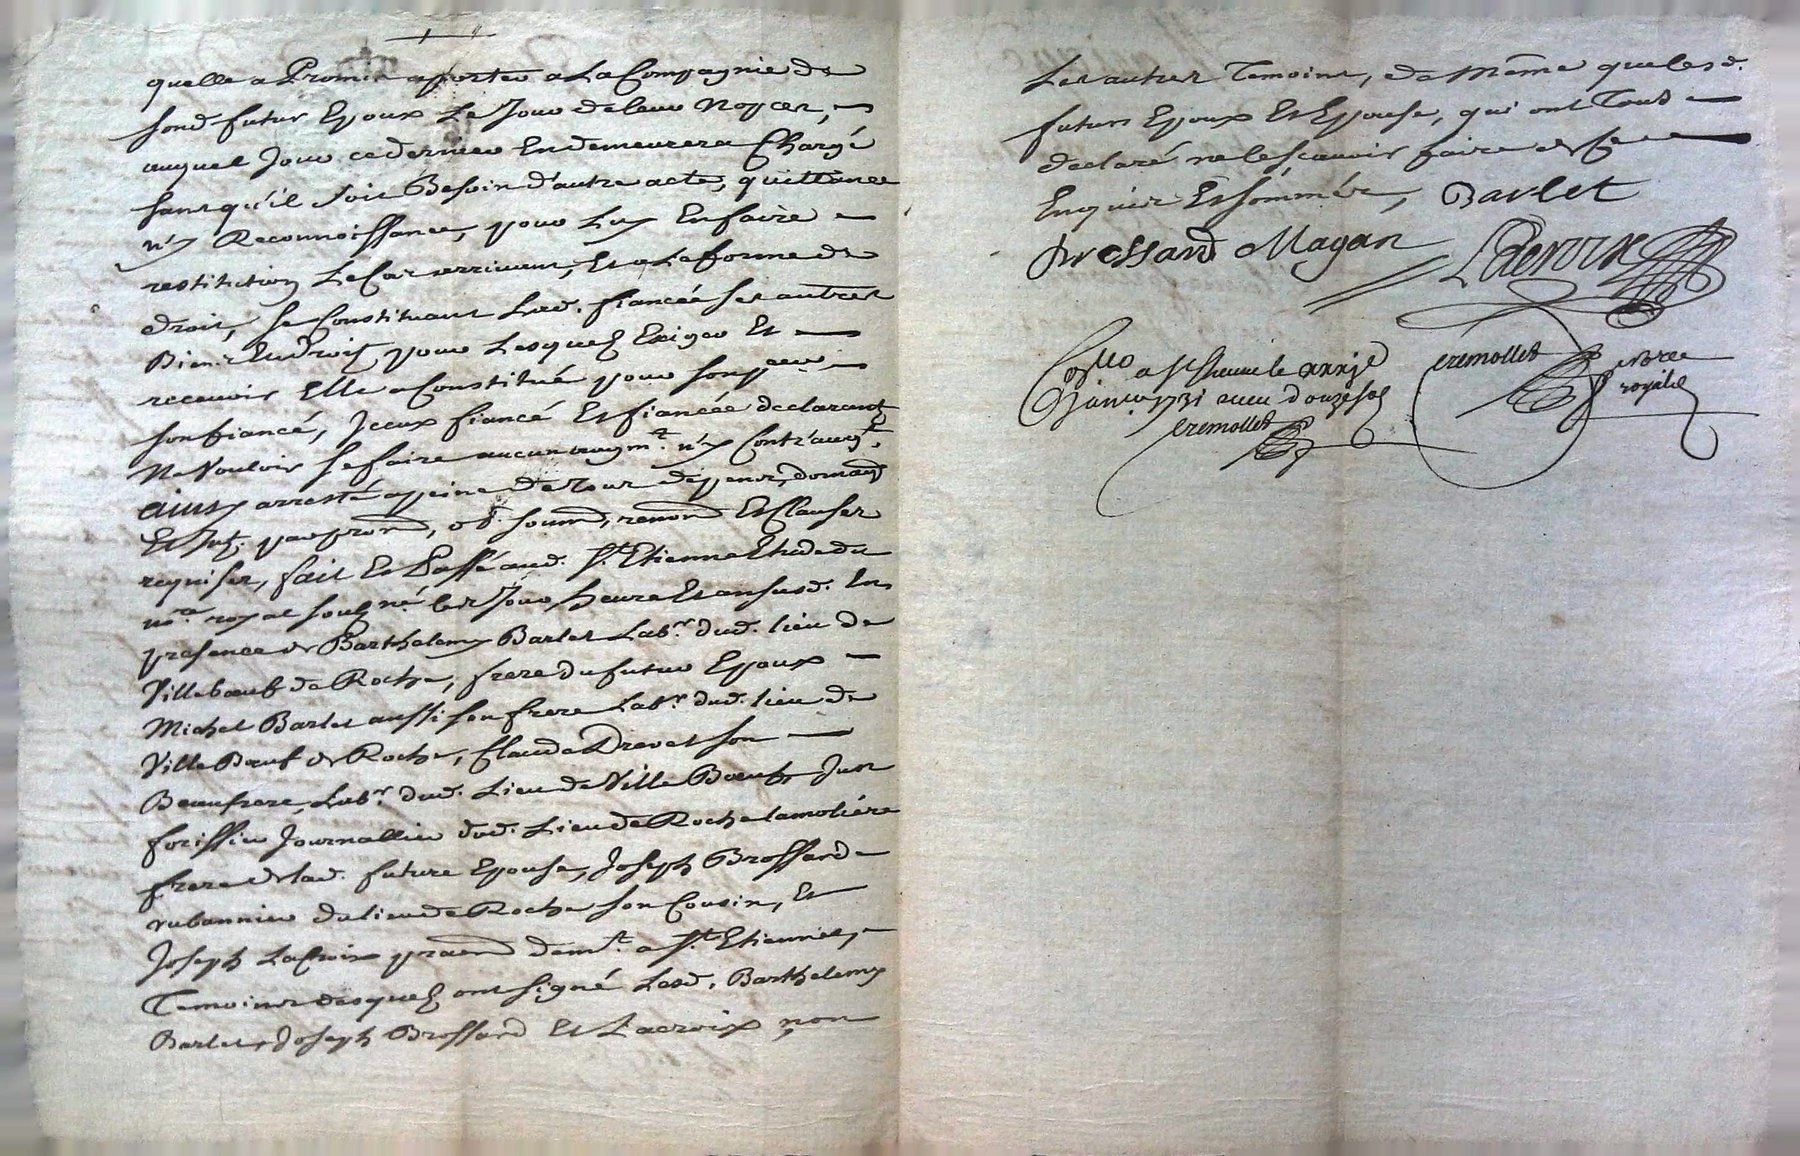 quelle a Promis apporter a La Compagnie de
sond. futur Epoux Le Jour de leur Nopces,
auquel Jour ce dernier En demeurera Chargé
sans qu'il soit Besoin d'autre acte, quittance
n'y Reconnoissance, pour Luy En faire
restitution Le Cas arrivant, Et a La forme de
droit, se Constituant Lad. fiancée ses autres
Biens Et Droits pour Lesquels Exiger Et
recevoir Elle a Constitué pour son
son fiancé, Iceux fiancé Et fiancée declarant
Ne Vouloir se faire aucun augmt. n'y Contr'augt.
ainsy arresté a peine de tous depens, domag
Et Int. par prom, ob. soum, renon Et Clauses
requises, fait Et Passé aud. St. Etienne Etude du
nre. royal soubné. les Jour heure Et an susd. En
presence de Barthelemy Barlet Labr. dud. lieu de
Villebœuf de Roche, frere du futur Epoux
Michel Barlet aussi son frere Labr. dud. lieu de
Ville Bœuf de Roche, Claude Drevet son
Beaufrere, Labr. dud. Lieu de Ville Bœuf, Just
forissier Journallier dud. Lieu de Roche lamoliére
frere de lad. future Epouse, Joseph Brossard
rubannier du lieu de Roche son Cousin, Et
Joseph Lacroix praen demt. a St. Etienne,
Temoins desquels ont signé Lesd. Barthelemy
Barlet, Joseph Brossard Et Lacroix non
Les autres Temoins, de Même que lesd.
futurs Epoux Et Epouse, qui ont Tous
declaré ne le sçavoir faire de ce
Enquis Et sommés, Barlet
Brossard Magan Lacroix
Collo a St Etienne le xxxje
Janer 1731 receu douze sols
Cremollet
Cremollet nore
royal